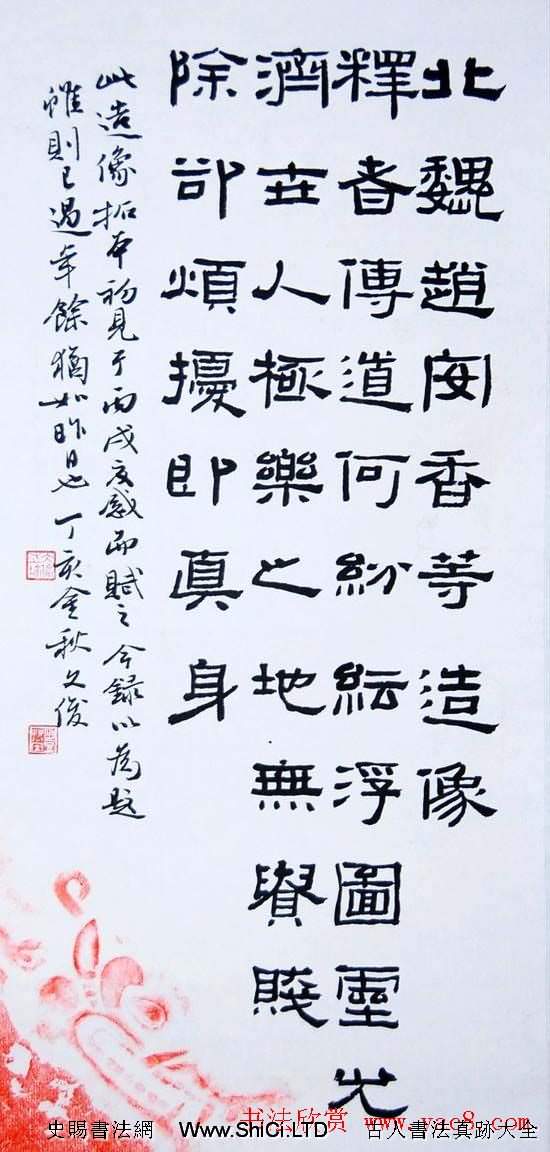 北魏趙安香等造像
釋者傳道何紛紜浮圖靈光
濟世人極樂之地無貴賤
除卻煩擾即真身
此造像拓本初見于丙戌夏感而賦之今錄以為題
雖則已過年餘猶如昨日也丁亥金秋文俊
书法欣赏 www.yac8.com
史賜書法網 Www.ShiCi.LTD 古人書法真跡大全